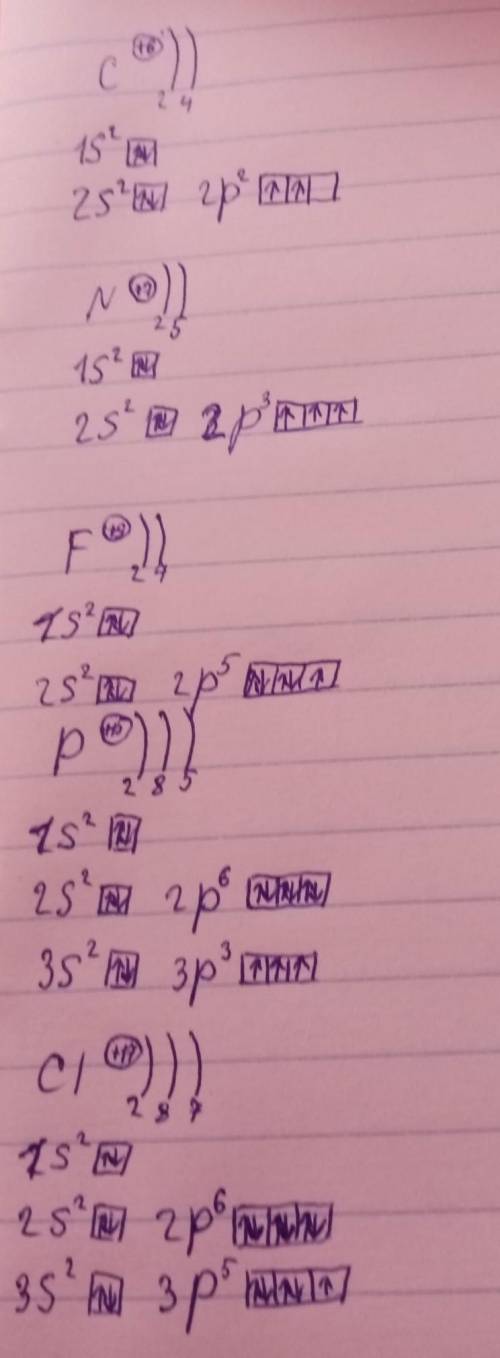 C +6 ))
2 4
1s² ↑↓
2s² ↑↓ 2p² ↑ ↑
N +7 ))
2 5
1s² ↑↓
2s² ↑↓ 2p³ ↑ ↑ ↑
F +9 ))
2 7
1s² ↑↓
2s² ↑↓ 2p⁵ ↑↓ ↑↓ ↑
P +15 )))
2 8 5
1s² ↑↓
2s² ↑↓ 2p⁶ ↑↓ ↑↓ ↑↓
3s² ↑↓ 3p³ ↑ ↑ ↑
Cl +17 )))
2 8 7
1s² ↑↓
2s² ↑↓ 2p⁶ ↑↓ ↑↓ ↑↓
3s² ↑↓ 3p⁵ ↑↓ ↑↓ ↑